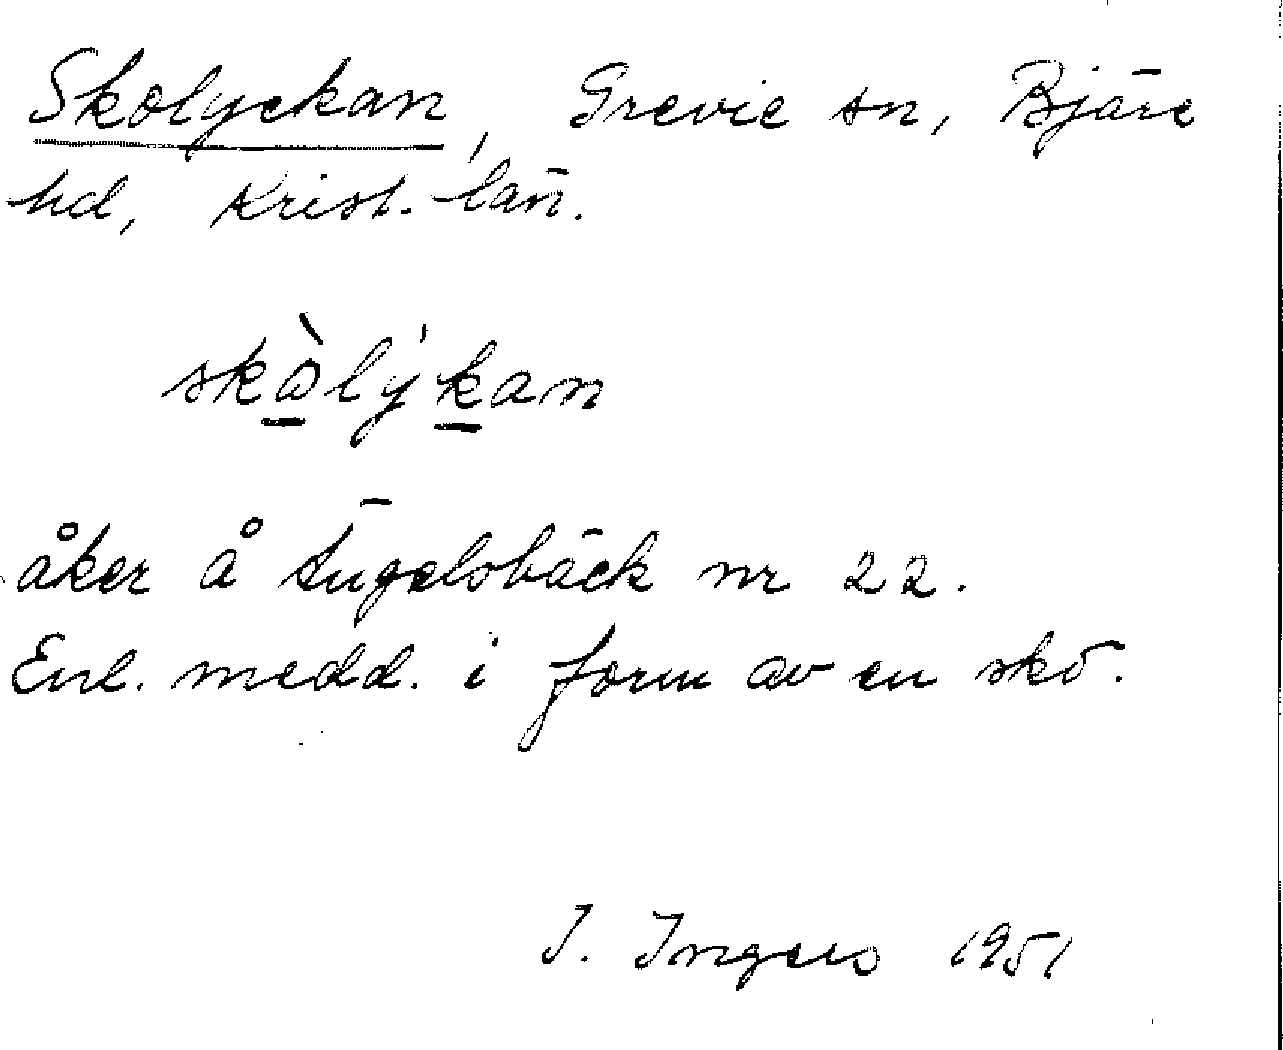 Skolyckan, Grevie sn, Bjäre
hd, Krist. län.
skòlýkan
åker å Ängelsbäck nr 22.
Enl. medd. i form av en sko.
I. Ingers 1951